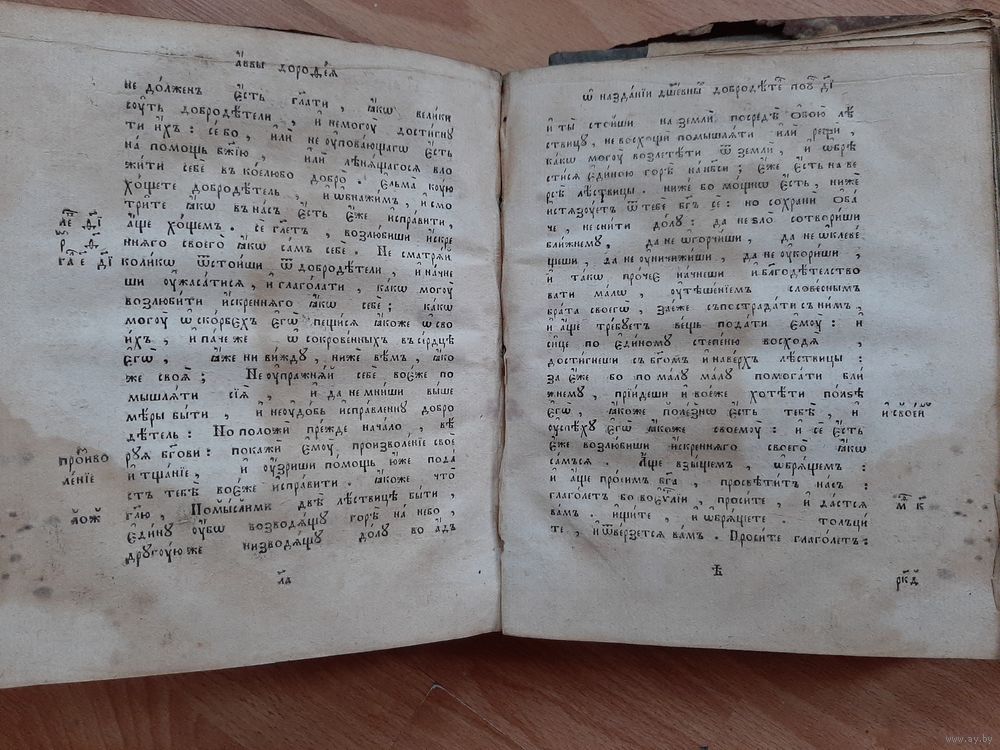 а҆ввы дороѳе́а
не до́лженъ є҆сть гл҃ати, ꙗ҆́кѡ вели́ки
сꙋ́ть добродѣ́тели, и҆ немогꙋ̀ дости́гнꙋ
ти и҆́хъ: се́ бо, и҆лѝ не ᲂу҆пова́ющагѡ є҆́сть
на помощь бж҃їю, и҆лѝ лѣнѧ́щагосѧ вло
жи́ти себѐ в коелюбо добро̀. Є҆льма̀ кꙋ́ю
хо́щете добродѣ́тель, и҆ ѡ҆бнажи́мъ, и҆ смо
три́те ꙗ҆́кѡ в на́съ є҆́сть є҆́же и҆спра́вити,
а҆́ще хо́щемъ. се́ гл҃етъ, возлю́биши и҆́скре
ннѧго своего̀ ꙗ҆́кѡ са́мъ себѐ. Не смотрѧ́й
коли́кѡ ѿстои́ши ѿ добродѣ́тели, и҆ на́чне
ши ᲂу҆жаса́тисѧ, и҆ глаго́лати, ка́кѡ могꙋ̀
возлюби́ти и҆́скреннѧго ꙗ҆́кѡ себѐ: ка́кѡ
могꙋ̀ ѡ҆ ско́рбехъ є҆гѡ̀ пещи́сѧ ꙗ҆́коже ѡ҆ сво
и́хъ, и҆ па́че же ѡ҆ сокрове́нныхъ в се́рдцѣ
є҆гѡ̀, ꙗ҆̀же ни ви́ждꙋ, ниже вѣ́мъ, ꙗ҆́ко
же своѧ̑; Не ᲂу҆пражнѧ́й себѐ во є҆́же по
мышлѧ́ти сїѧ̑, и҆ да не мни́ши вы́ше
мѣ́ры бы́ти, и҆ неᲂу҆до́бь и҆спра́вленнꙋ добро
дѣ́тель: Но положѝ пре́жде нача́ло, вѣ́
рꙋѧ бг҃ови: покажѝ є҆мꙋ̀ произволе́нїе своѐ
и҆ тща́нїе, и҆ ᲂу҆́зриши по́мощь ю҆́же пода
стъ тебѣ̀ во є҆́же и҆спра́вити. ꙗ҆́коже что̀
гл҃ю, Помы́сли ми двѣ̀ лѣ́ствицѣ бы́ти,
є҆ди́нꙋ ᲂу҆́бѡ возводѧ́щꙋ горѣ̀ на не́бо,
дрꙋгꙋ́ю же низводѧ́щꙋ до́лꙋ во а҆́дъ
произво
ле́нїе
л҃а
ѡ҆ назда́нїи дш҃е́вныⷯ добродѣ́теⷧ҇ поꙋ҆ дı҃
и҆ ты̀ стои́ши на землѝ посредѣ̀ ѻ҆бою̀ лѣ́
ствицꙋ, не восхощѝ помышлѧ́ти и҆лѝ рещѝ,
ка́кѡ могꙋ̀ возлетѣ́ти ѿ землѝ, и҆ ѡ҆брѣ
сти́сѧ є҆ди́ною горѣ̀ на нб҃сѝ; є҆́же є҆́сть на ве
рсѣ̀ лѣ́ствицы. ниже́ бо мо́щнѡ є҆́сть, нижѐ
и҆стѧзꙋ́етъ ѿ тебѐ бг҃ъ сѐ: но сохранѝ ѻ҆ба
че, не сни́ти до́лꙋ: да не ѕло̀ сотвори́ши
бли́жнемꙋ, да не ѡ҆горчи́ши, да не ѡ҆клеве́
щеши, да не ᲂу҆ничижи́ши, да не ᲂу҆кори́ши,
и҆ та́кѡ про́чее начне́ши и҆ благодѣ́телство
вати ма́лѡ, ᲂу҆тѣше́нїемъ слове́снымъ
бра́та своегѡ̀, за є҆́же съпострада́ти с ни́мъ,
и҆ а҆́ще тре́бꙋетъ ве́щь пода́ти є҆мꙋ̀: и҆
си́це по є҆ди́номꙋ степе́ню восходѧ̀,
дости́гнеши съ бг҃омъ и҆ наве́рхъ лѣ́ствицы:
За є҆́же бо по ма́лꙋ ма́лꙋ помога́ти бли́
жнемꙋ, прїи́деши и҆ во є҆́же хотѣ́ти по́лзѣ
є҆гѡ̀, ꙗ҆́коже поле́знѡ є҆́сть тебѣ̀, и҆
ᲂу҆спѣ́хꙋ є҆гѡ̀ ꙗ҆́коже своемꙋ̀: и҆ сѐ є҆́сть
є҆́же возлю́биши и҆́скреннѧго своего̀ ꙗ҆́кѡ
са́мъсѧ. А҆́ще взы́щемъ, ѡ҆брѧ́щемъ:
и҆ а҆́ще про́симъ бг҃а, просвѣти́тъ на́съ:
глаго́летъ бо во є҆ѵⷢ҇лїи, проси́те, и҆ да́стсѧ
ва́мъ. и҆щи́те, и҆ ѡ҆брѧ́щете. толцы́
те, и҆ ѿве́рзетсѧ ва́мъ. Проси́те глаго́летъ:
ѣ
рк҃д
www.ay.by